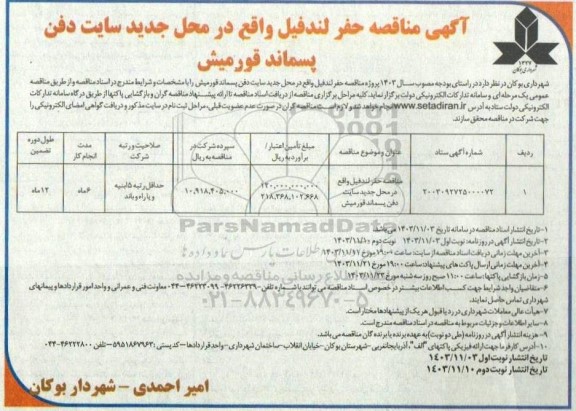 آگهی مناقصه حفر لندفیل واقع در محل جدید سایت دفن
پسماند قورمیش
۱۳۳۷
شهرداری بوکان
شهرداری بوکان در نظر دارد در راستای بودجه مصوب سال ۱۴۰۳ پروژه مناقصه حفر لندفیل واقع در محل جدید سایت دفن پسماند قورمیش را با مشخصات و شرایط مندرج در اسناد مناقصه و از طریق مناقصه
عمومی یک مرحله ای و سامانه تدارکات الکترونیکی دولت برگزار نماید. کلیه مراحل برگزاری مناقصه از دریافت اسناد مناقصه تا ارائه پیشنهاد مناقصه گران و بازگشایی پاکتها از طریق درگاه سامانه تدارکات
الکترونیکی دولت ستاد به آدرس www.setadiran.ir انجام خواهد شد و لازم است مناقصه گران در صورت عدم عضویت قبلی، مراحل ثبت نام در سایت مذکور و دریافت گواهی امضای الکترونیکی را
جهت شرکت در مناقصه محقق سازند.
ردیف | شماره آگهی ستاد | عنوان و موضوع مناقصه | مبلغ تأمین اعتبار / برآورد به ریال | سپرده شرکت در مناقصه به ریال | صلاحیت و رتبه شرکت | مدت انجام کار | طول دوره تضمین
۱ | ۲۰۰۳۰۹۲۷۲۵۰۰۰۰۷۲ | مناقصه حفر لندفیل واقع در محل جدید سایت دفن پسماند قورمیش | ۱۲۰,۰۰۰,۰۰۰,۰۰۰ ۲۱۸,۳۶۸,۱۰۲,۶۶۸ | ۱۰,۹۱۸,۴۰۵,۰۰۰ | حداقل رتبه ۵ ابنیه و یا راه و باند | ۶ ماه | ۱۲ ماه
ParsNamadData
پایگاه اطلاع رسانی مناقصه و مزایده
۰۲۱-۸۸۳۴۹۶۷۰-۵
۱-تاریخ انتشار اسناد مناقصه در سامانه تاریخ ۱۴۰۳/۱۱/۰۳ می باشد.
۲-تاریخ انتشار آگهی در روزنامه: نوبت اول ۱۴۰۳/۱۱/۰۳ نوبت دوم ۱۴۰۳/۱۱/۱۰
۳-آخرین مهلت زمانی دریافت اسناد مناقصه از سایت: ساعت ۱۹:۰۰ مورخ ۱۴۰۳/۱۱/۱۱
۴-آخرین مهلت زمانی ارسال پاکت های پیشنهاد: ساعت ۱۹:۰۰ مورخ ۱۴۰۳/۱۱/۲۱
۵-زمان بازگشایی پاکتها: ساعت ۱۱:۰۰ صبح روز سه شنبه مورخ ۱۴۰۳/۱۱/۲۳
۶-متقاضیان واجد شرایط جهت کسب اطلاعات بیشتر در خصوص اسناد مناقصه می توانند با شماره تلفن های معاونت فنی و عمرانی و واحد امور قراردادها و پیمانهای
شهرداری تماس حاصل نمایند.
۷-هیأت عالی معاملات شهرداری در رد یا قبول هر یک از پیشنهادها مختار است.
۸-سایر اطلاعات و جزئیات مربوط به مناقصه در اسناد مناقصه مندرج است.
۹-هزینه انتشار آگهی در روزنامه (طی دو نوبت) به عهده برنده یا برنده گان مناقصه می باشد.
۱۰-آدرس کارفرما جهت ارائه فیزیکی پاکتهای "الف"، آذربایجانغربی-شهرستان بوکان-خیابان انقلاب-ساختمان شهرداری-واحد قراردادها-کدپستی: ۵۹۵۱۸۶۷۹۶۳ تلفن: ۰۴۴-۴۶۲۲۲۸۰۰
تاریخ انتشار نوبت اول ۱۴۰۳/۱۱/۰۳
تاریخ انتشار نوبت دوم ۱۴۰۳/۱۱/۱۰
امیر احمدی - شهردار بوکان